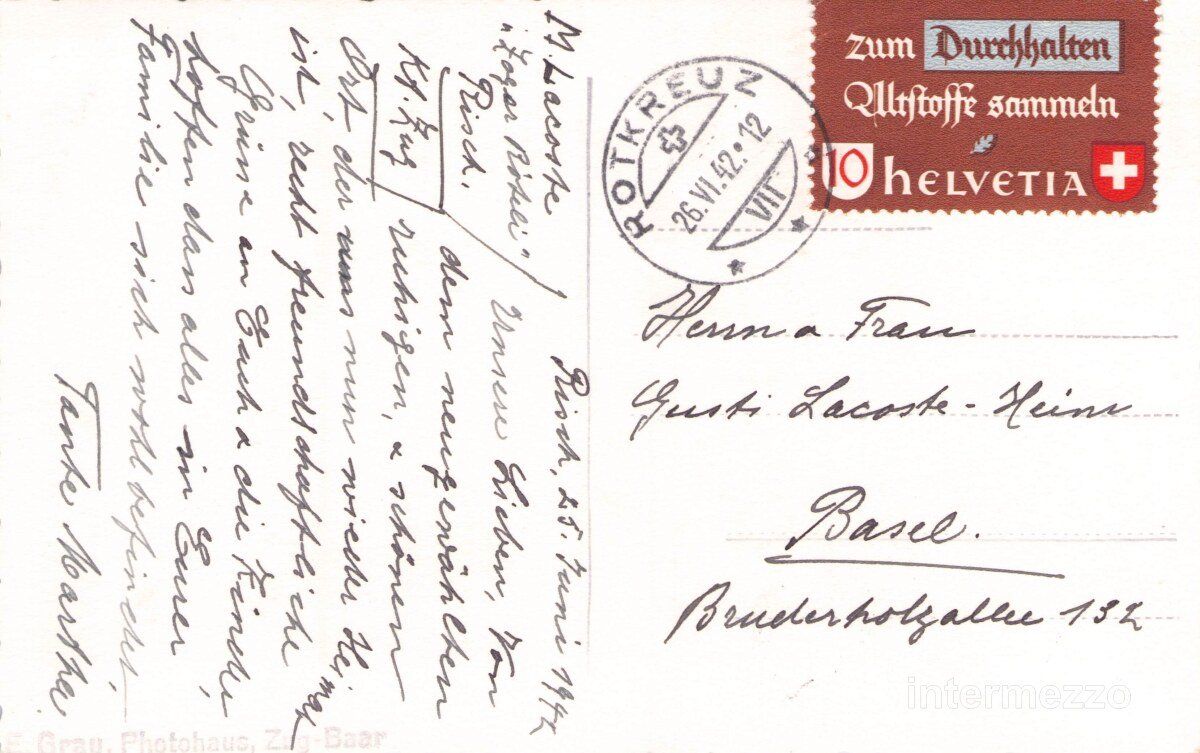 M. Lacoste
"Zogar Röteli"
Risch.
Kt. Zug
Risch, 25. Juni 1942
Unsere Lieben, Von
dem neugewählten
ruhigen, & schönen
Ort, der uns nun wieder Hei
mat
ist, recht freundschaftliche
Grüsse an Euch & die Kinder,
hoffen dass alles in Eurer
Familie sich wohl befindet.
Tante Martha.
E. Grau, Photohaus, Zug-Baar
ROTKREUZ
26.VI.42.12
VII
zum Durchhalten
Altstoffe sammeln
10 HELVETIA
Herrn & Frau
Gusti Lacoste-Heim
Basel.
Bruderholzallee 132
intermezzo